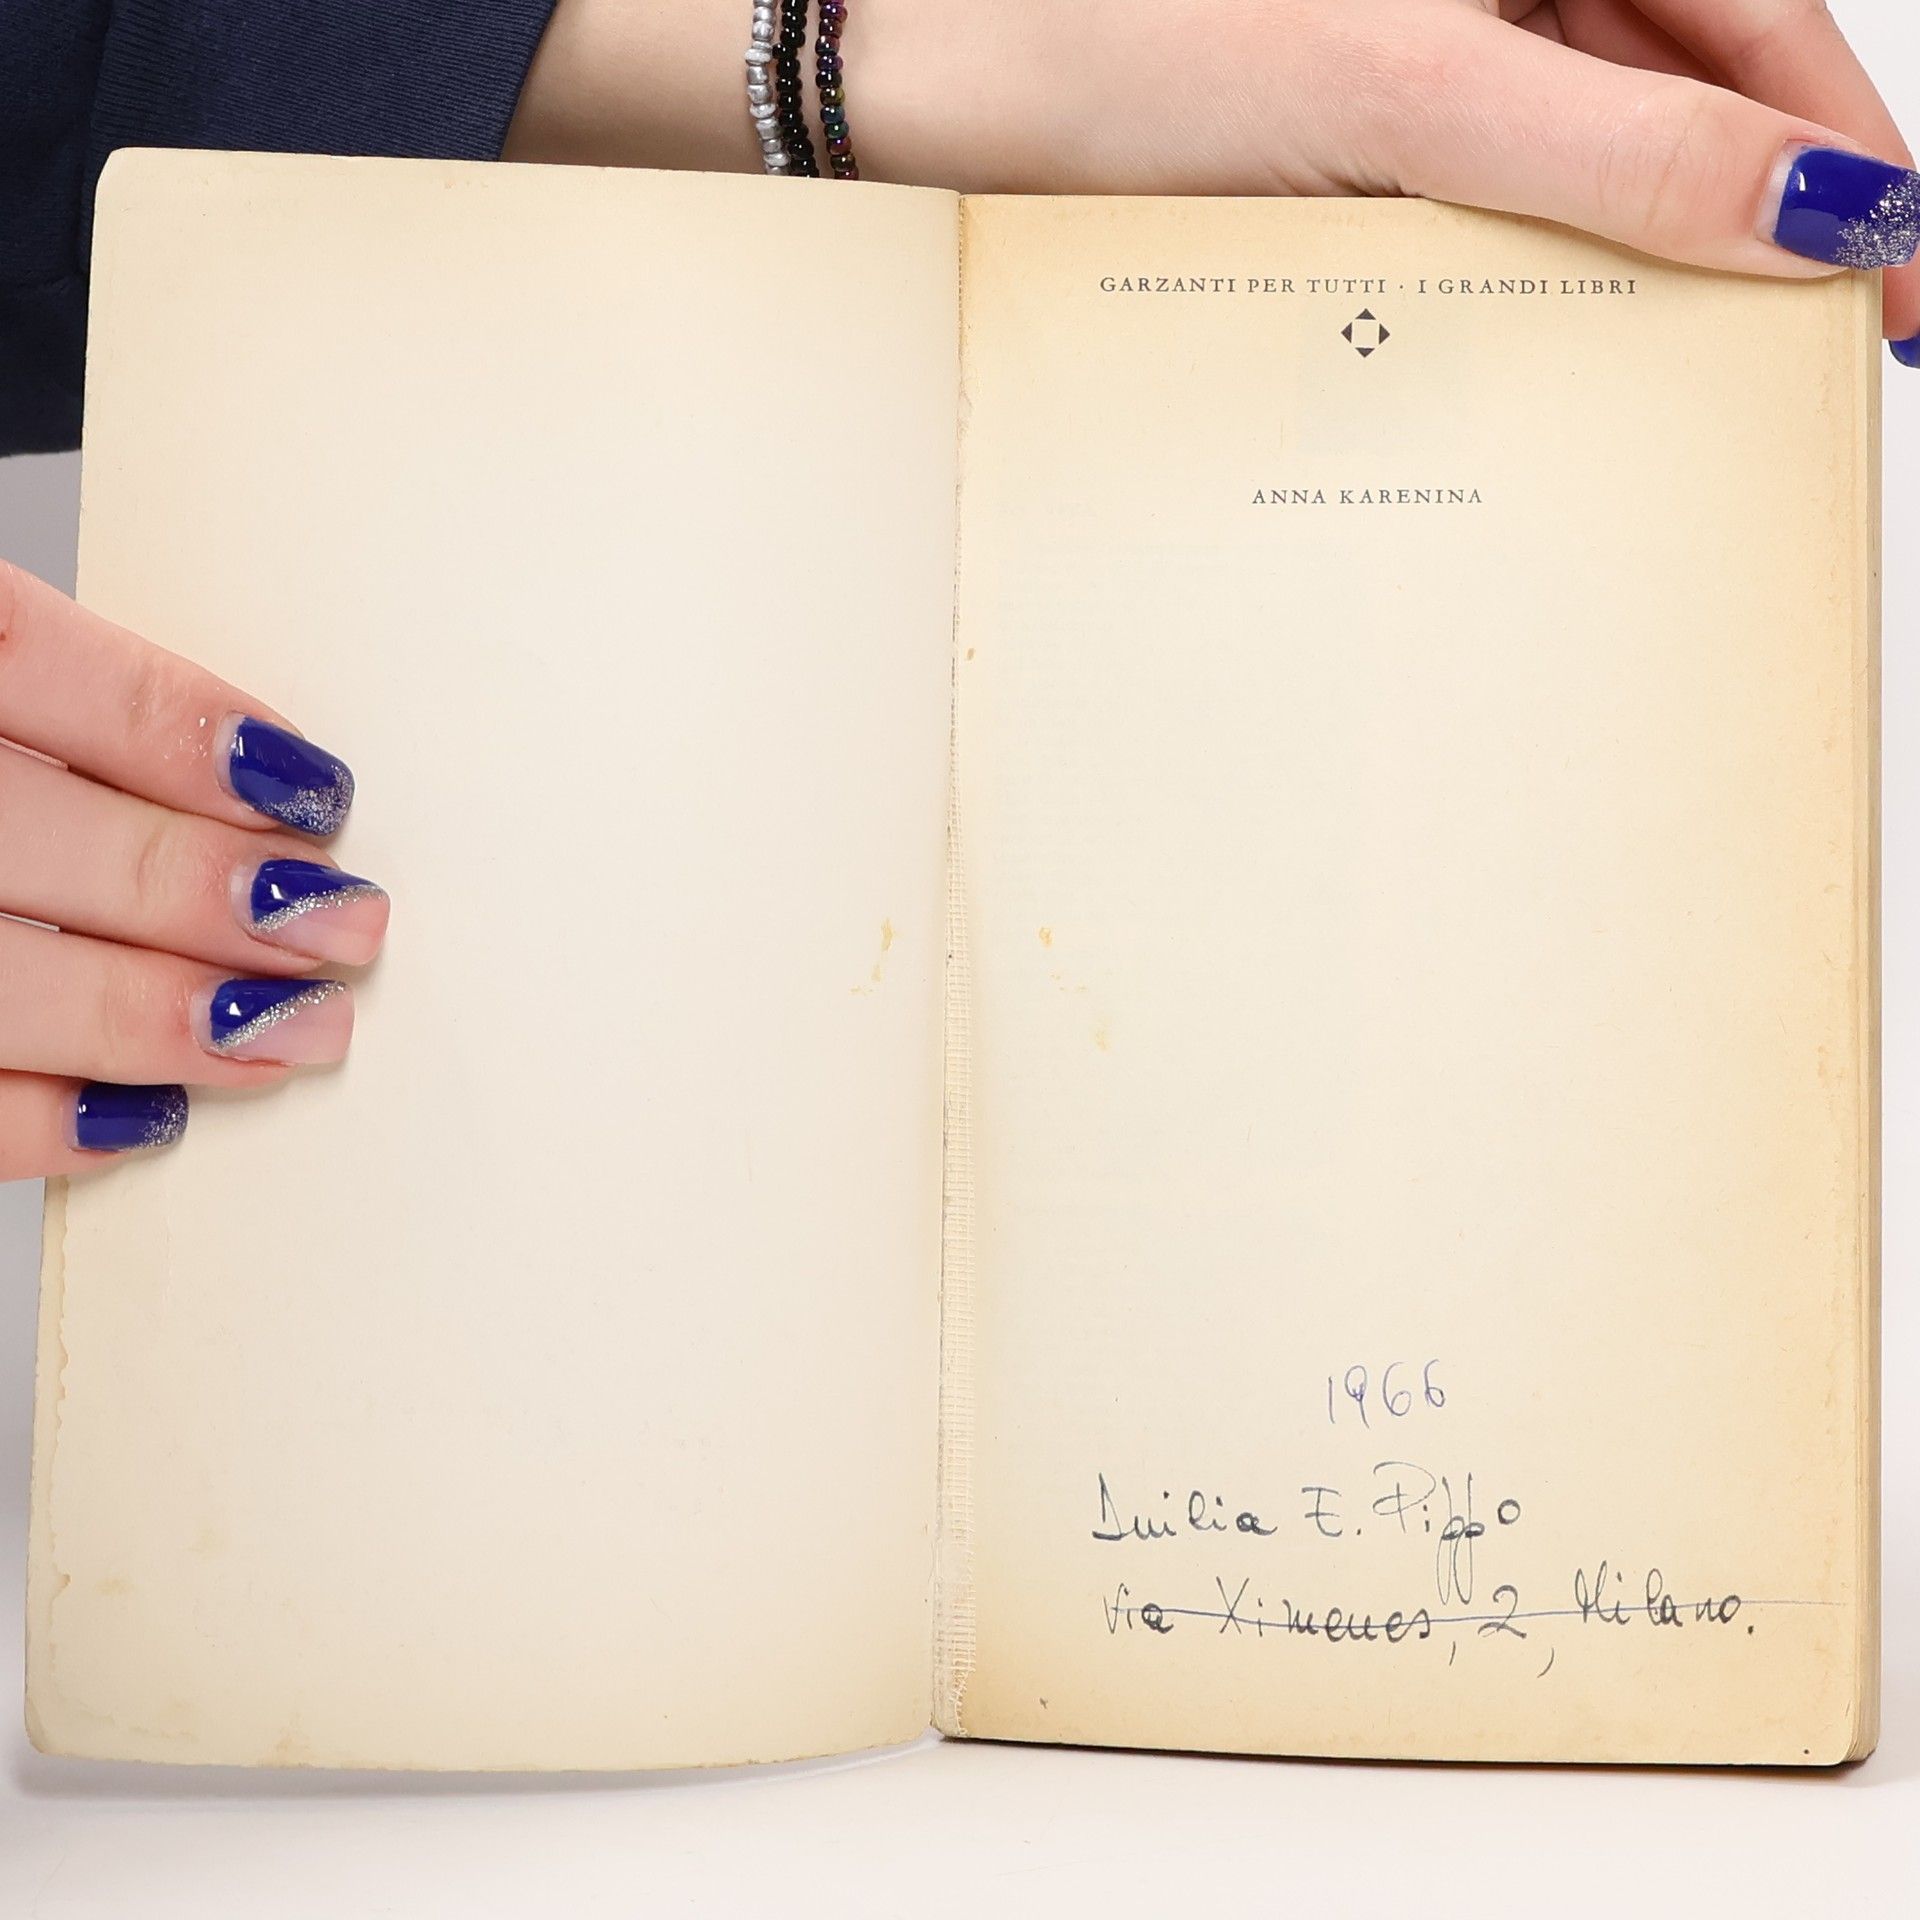 GARZANTI PER TUTTI · I GRANDI LIBRI
ANNA KARENINA
1966
Duilia E. Pippo
via Ximenes, 2, Milano.